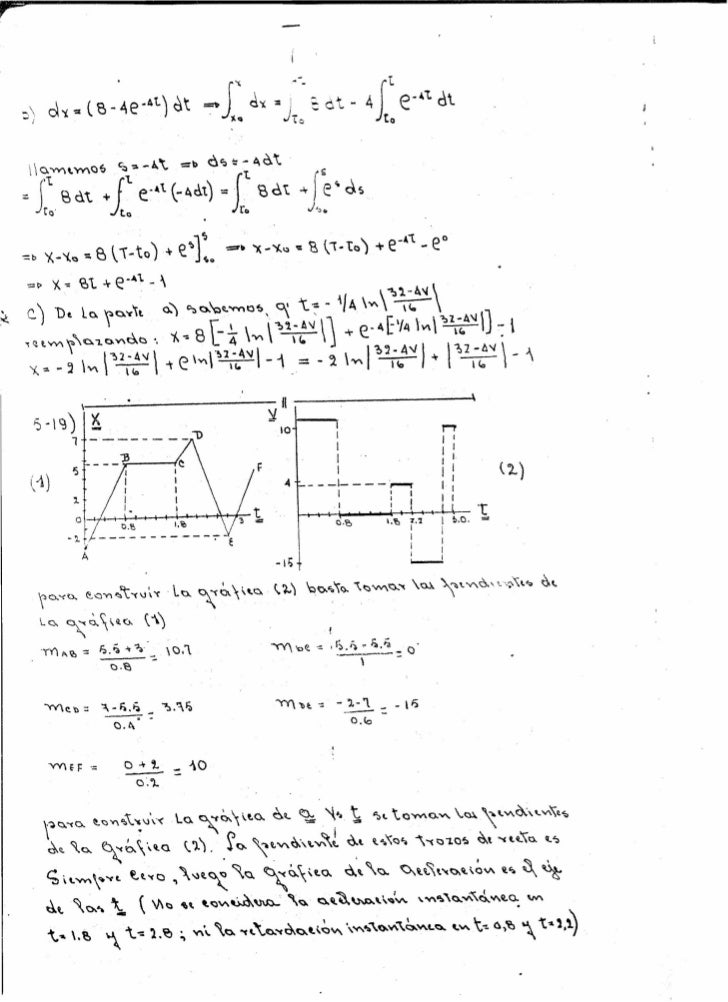 =) dx = (8 - 4e^-4t) dt => ∫x₀^x dx = ∫t₀^t 8 dt - 4 ∫t₀^t e^-4t dt
llamemos s = -4t => ds = -4dt
= ∫t₀^t 8dt + ∫t₀^t e^-4t (-4dt) = ∫t₀^t 8dt + ∫s₀^s e^s ds
=> x-x₀ = 8(t-t₀) + e^s]s₀^s => x-x₀ = 8(t-t₀) + e^-4t - e^0
=> x = 8t + e^-4t - 1
C) De la parte a) sabemos q' t = - 1/4 ln|32-4V/16|
reemplazando: x = 8[-1/4 ln|32-4V/16|] + e^-4[-1/4 ln|32-4V/16|] - 1
x = -2 ln|32-4V/16| + e^ln|32-4V/16| - 1 = -2 ln|32-4V/16| + |32-4V/16| - 1
5-19) X
7
5
2
0
-2
A
B
C
D
E
F
0.8
1.8
3
t
(1)
V
10
4
-15
0.8
1.8
2.2
3.0
t
(2)
para construir la gráfica (2) basta tomar las pendientes de
la gráfica (1)
mAB = 5.5+3/0.8 = 10.7 mbc = 5.5-5.5/1 = 0
mCD = 7-5.5/0.4 = 3.75 mDE = -2-7/0.6 = -15
mEF = 0+2/0.2 = 10
para construir la gráfica de a Vs t se toman las pendientes
de la gráfica (2). La pendiente de estos trozos de recta es
Siempre cero, luego la gráfica de la aceleración es el eje
de las t (No se concidera la aceleración instantánea en
t=1.8 y t=2.8; ni la retardación instantánea en t=0,8 y t=2,2)